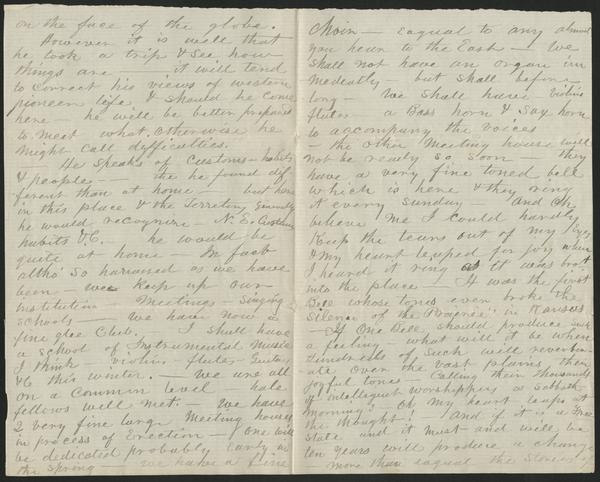 on the face of the globe.
However it is well that
he took a trip & see how
things are — it will tend
to correct his views of western
pioneer life & should he come
here he will be better prepared
to meet what otherwise he
might call dyfficulties.
He speaks of Customs — habits
& people — the he found dif
ferent than at home — but here
in this place & the Territory generally
he would recognize — N. E. Customs
habits &C. he would be
quite at home — In fact
altho' so harrassed as we have
been — we keep up our
institution Meetings — Singing
schools — we have now a
fine glee Club. I shall have
a school of Instrumental Music
I think violin, flute, Guitar
&c this winter. — We are all
on a Common level hale
fellows well met. — We have
2 very fine large Meeting houses
in process of Erection — One will
be dedicated probably Early in
the Spring — we have a fine
Choir — eaqual to any almost
you hear to the East — We
shall not have an organ im
mediately — but shall before
long — We shall have violins
flutes a Bass horn & Sax horn
to accompany the voices
— the other Meeting house will
not be ready so soon — they
have a very fine toned bell
which is here & they ring
it every Sunday — and Oh
believe me I could hardly
keep the tears out of my eyes
& my heart leaped for joy when
I heard it ring as it was brot
into the place — It was the first
Bell whose tones ever broke the
silence of the Praerie in Kansas
— If One Bell should produce such
a feeling what will it be when
hundreds of such will reverber-
ate over the vast plains, their
joyful tones — Calling their thousands
of intelligent worshippers a sabbath
morning! — Oh my heart leaps at
the thought! and if it is a Free
State and it must and will be
ten years will produce a change
more than eaqual the Stories of